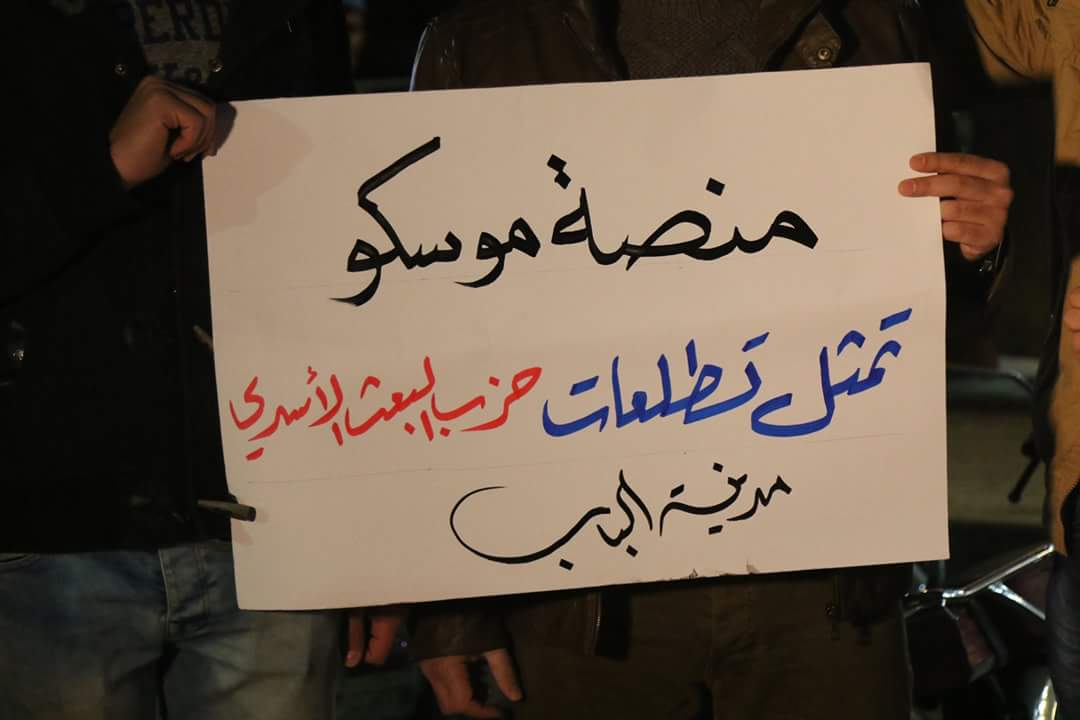 منصة موسكو
تمثل تطلعات حزب البعث الأسدي
مدينة الباب